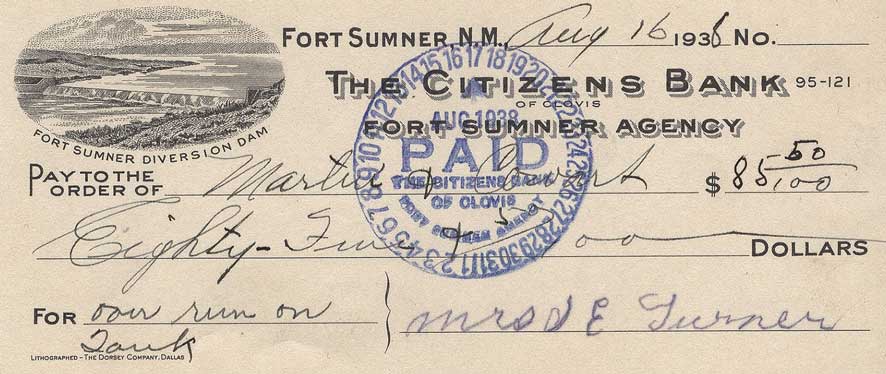 FORT SUMNER, N.M., Aug 16 1938 No.
THE CITIZENS BANK 95-121
OF CLOVIS
FORT SUMNER AGENCY
FORT SUMNER DIVERSION DAM
PAY TO THE ORDER OF Martin & $ 85 50/100
Eighty-Five & 50/100 DOLLARS
FOR over run on
Tank
Mrs D E Turner
LITHOGRAPHED – THE DORSEY COMPANY, DALLAS
1 2 3 4 5 6 7 8 9 10 11 12 13 14 15 16 17 18 19 20 21 22 23 24 25 26 27 28 29 30 31
AUG 1938
PAID
THE CITIZENS BANK
OF CLOVIS
FORT SUMNER AGENCY